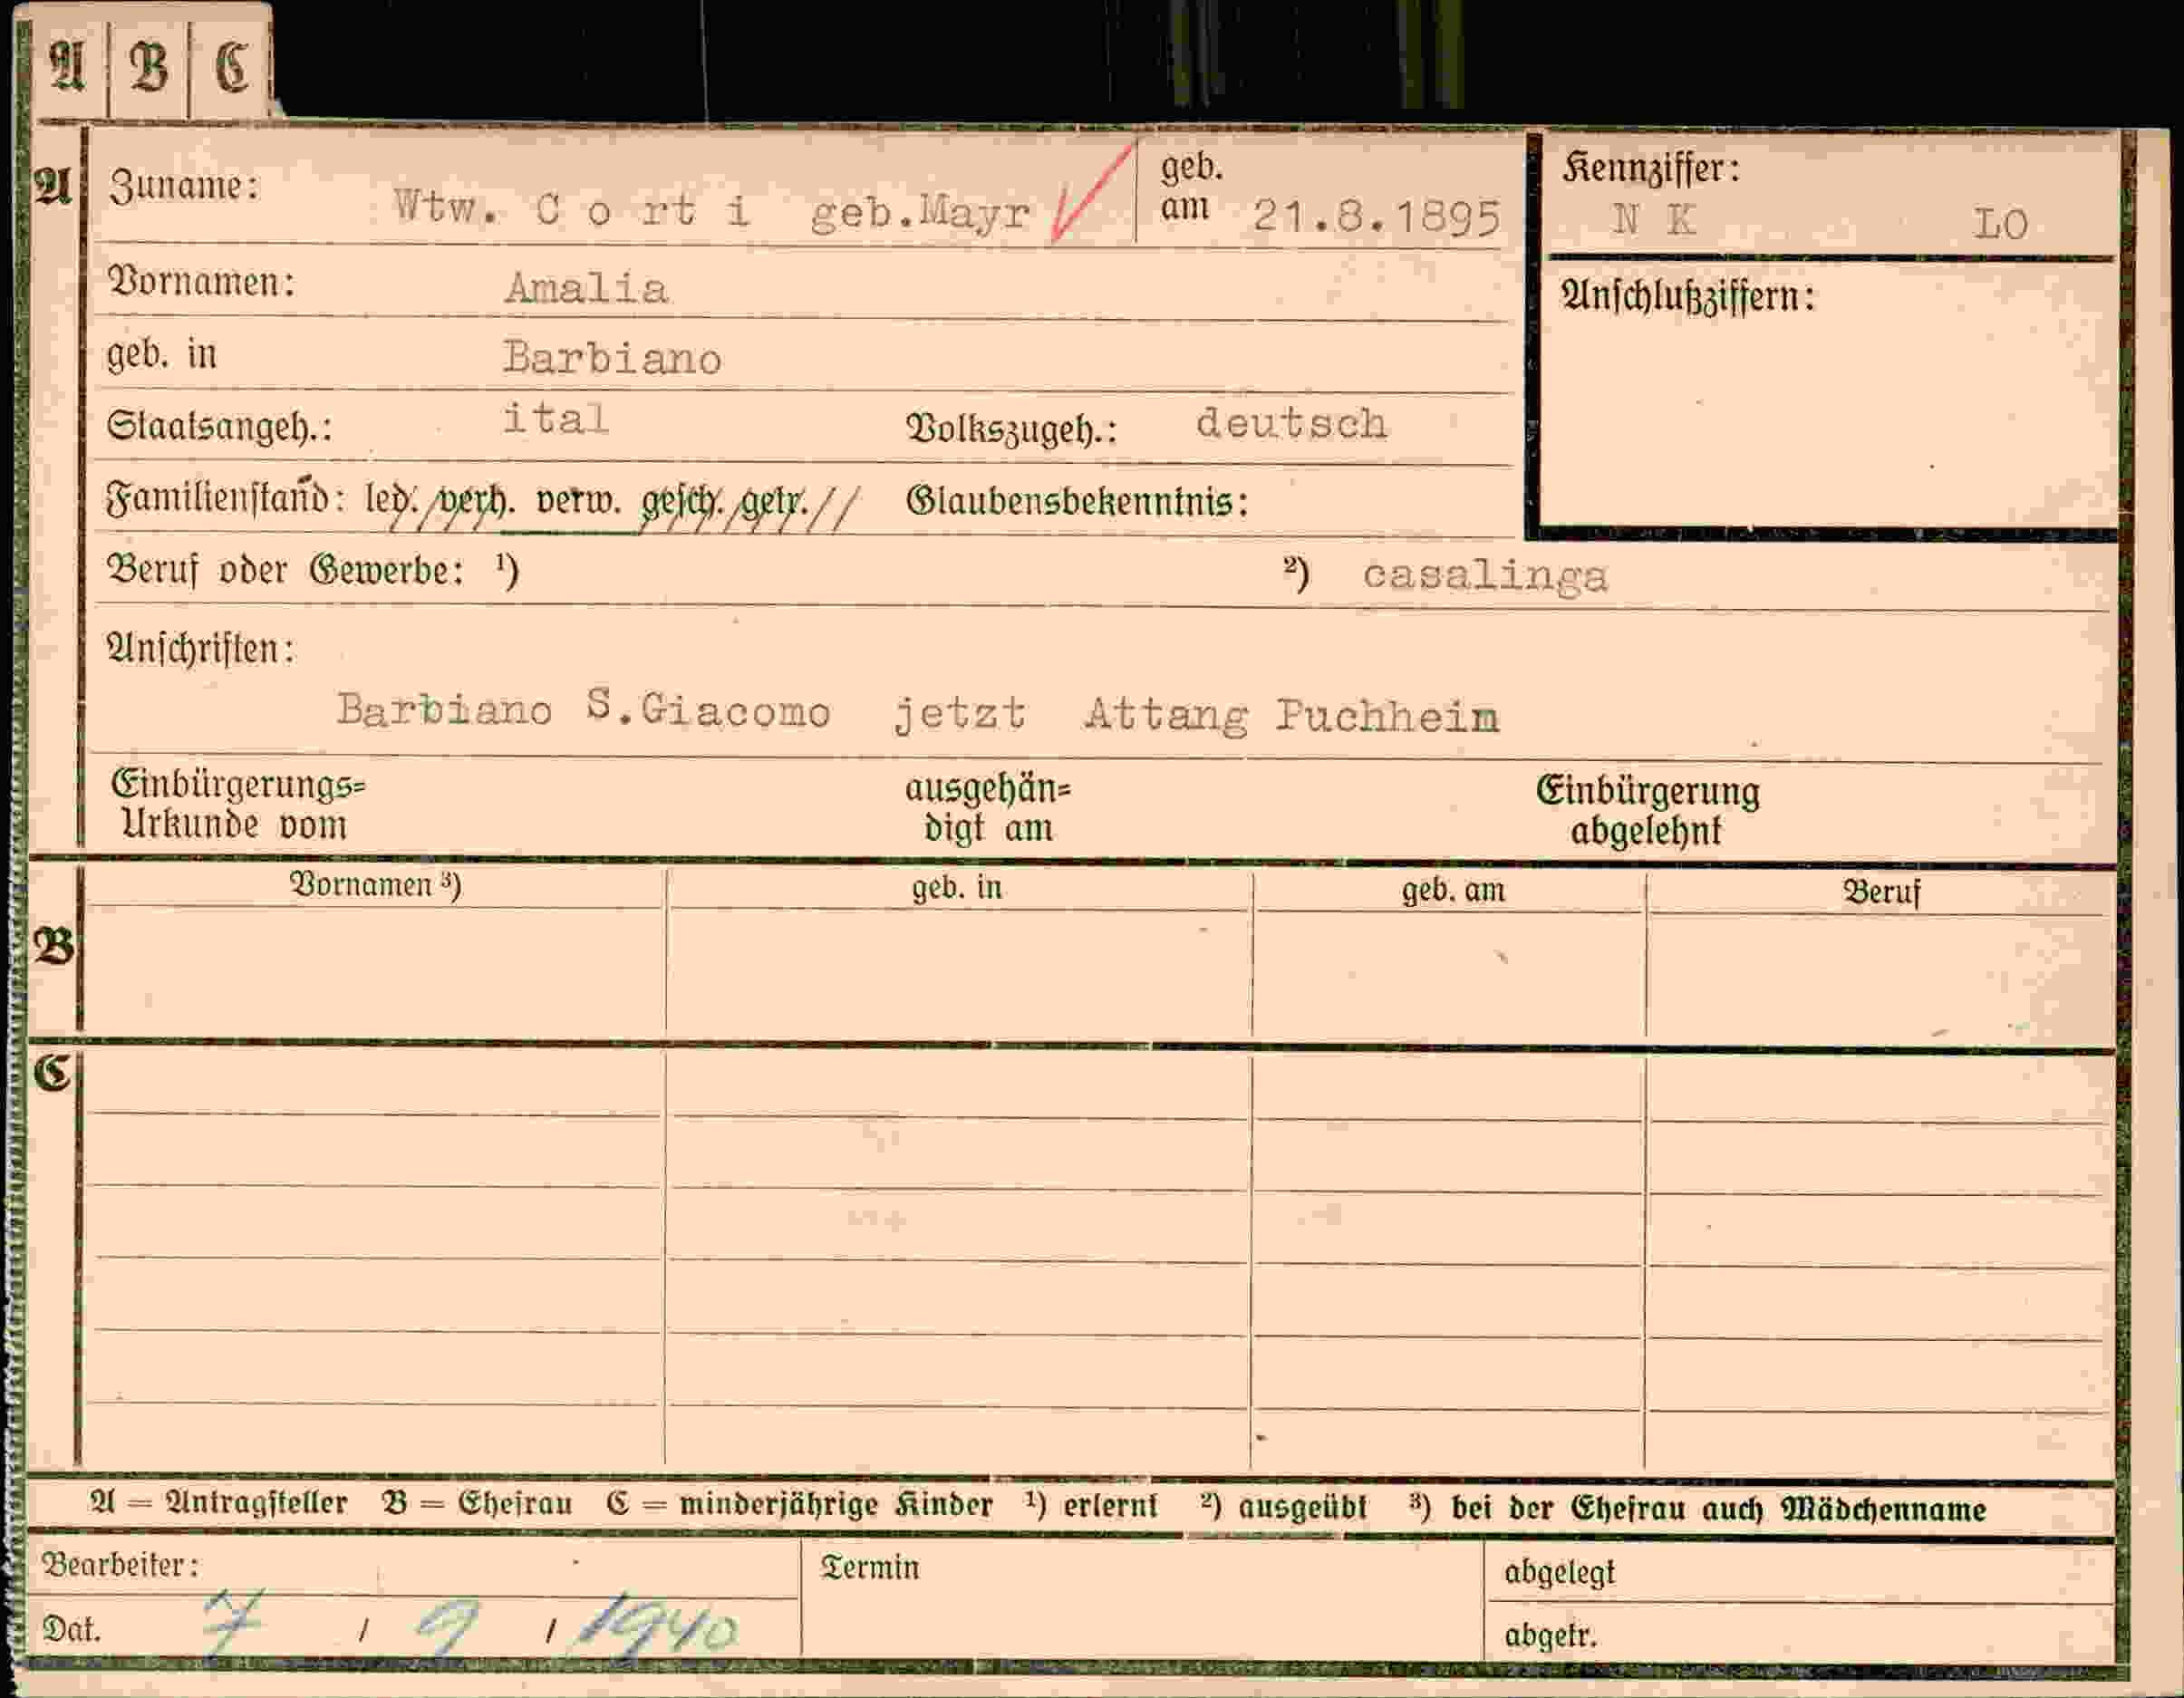 A B C
A Zuname: Wtw. C o rt i geb.Mayr geb. am 21.8.1895 Kennziffer: N K LO
Vornamen: Amalia Anschlußziffern:
geb. in Barbiano
Staatsangeh.: ital Volkszugeh.: deutsch
Familienstand: led. verh. verw. gesch. getr. // Glaubensbekenntnis:
Beruf oder Gewerbe: ¹) ²) casalinga
Anschriften:
Barbiano S.Giacomo jetzt Attang Puchheim
Einbürgerungs= ausgehän= Einbürgerung
Urkunde vom digt am abgelehnt
Vornamen ³) geb. in geb. am Beruf
B
C
A = Antragsteller B = Ehefrau C = minderjährige Kinder ¹) erlernt ²) ausgeübt ³) bei der Ehefrau auch Mädchenname
Bearbeiter: Termin abgelegt
Dat. 7 / 9 / 1940 abgetr.